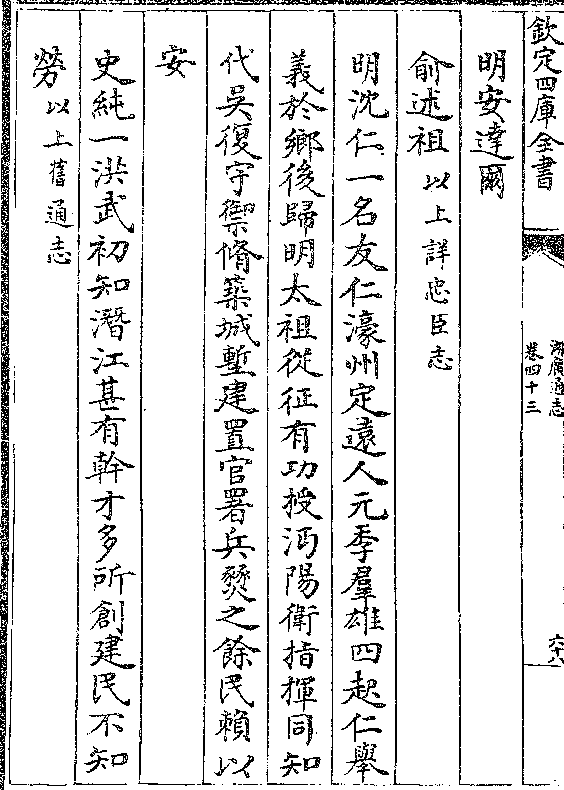 欽定四庫全書
湖廣通志
卷四十三
六十八
明安達爾
俞述祖以上詳忠臣志
明沈仁一名友仁濠州定遠人元季羣雄四起仁舉
義於鄉後歸明太祖從征有功授沔陽衛指揮同知
代吳復守禦脩築城塹建置官署兵燹之餘民賴以
安
史純一洪武初知潛江甚有幹才多所創建民不知
勞以上舊通志